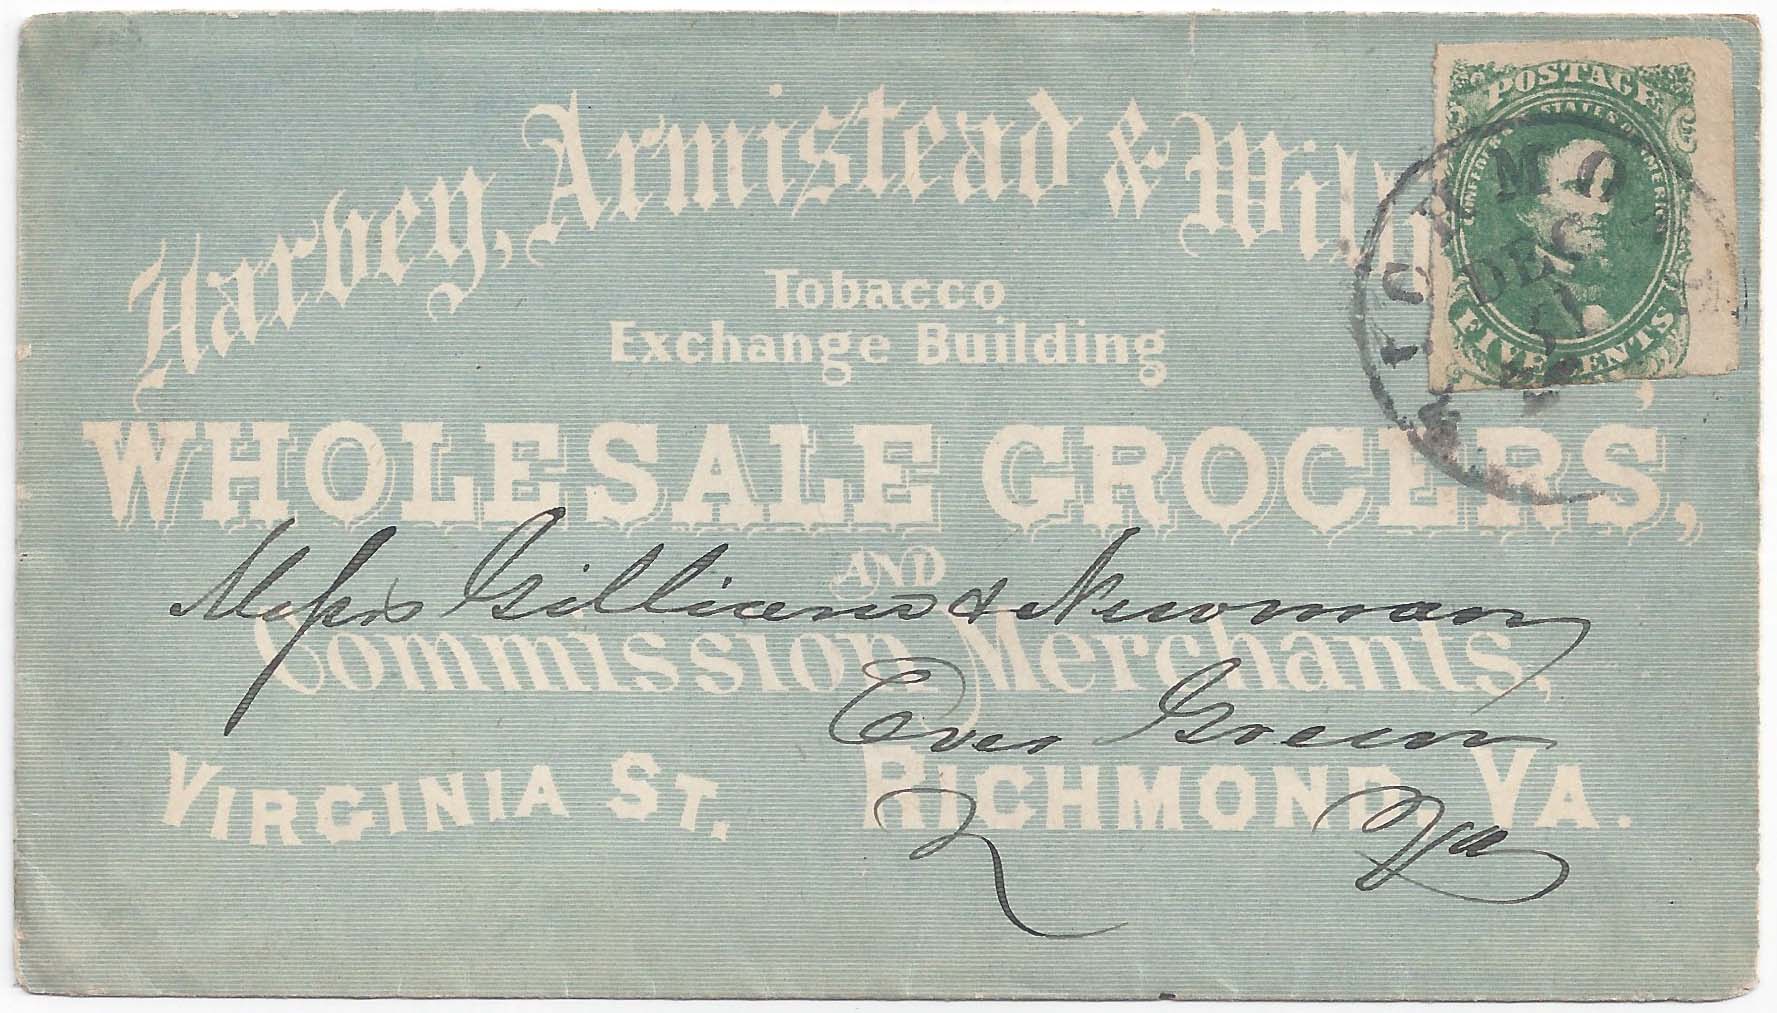 Harvey, Armistead & Will
Tobacco
Exchange Building
WHOLESALE GROCERS,
AND
Commission Merchants,
VIRGINIA ST. RICHMOND, VA.
POSTAGE
CONFEDERATE STATES OF AMERICA
FIVE CENTS
RICHMOND
DEC
Messrs Gilliam & Newman
Ever Green
Va